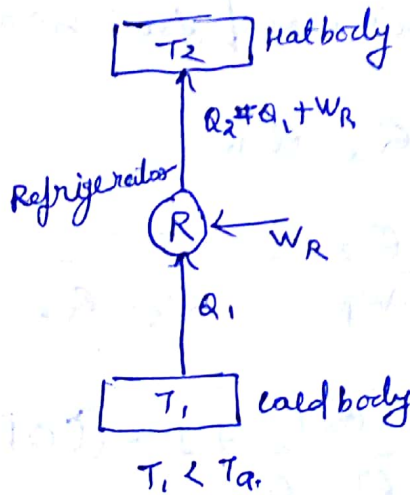 T2 Hot body
Q2 = Q1 + WR
Refrigerator
R
WR
Q1
T1 Cold body
T1 < Ta.